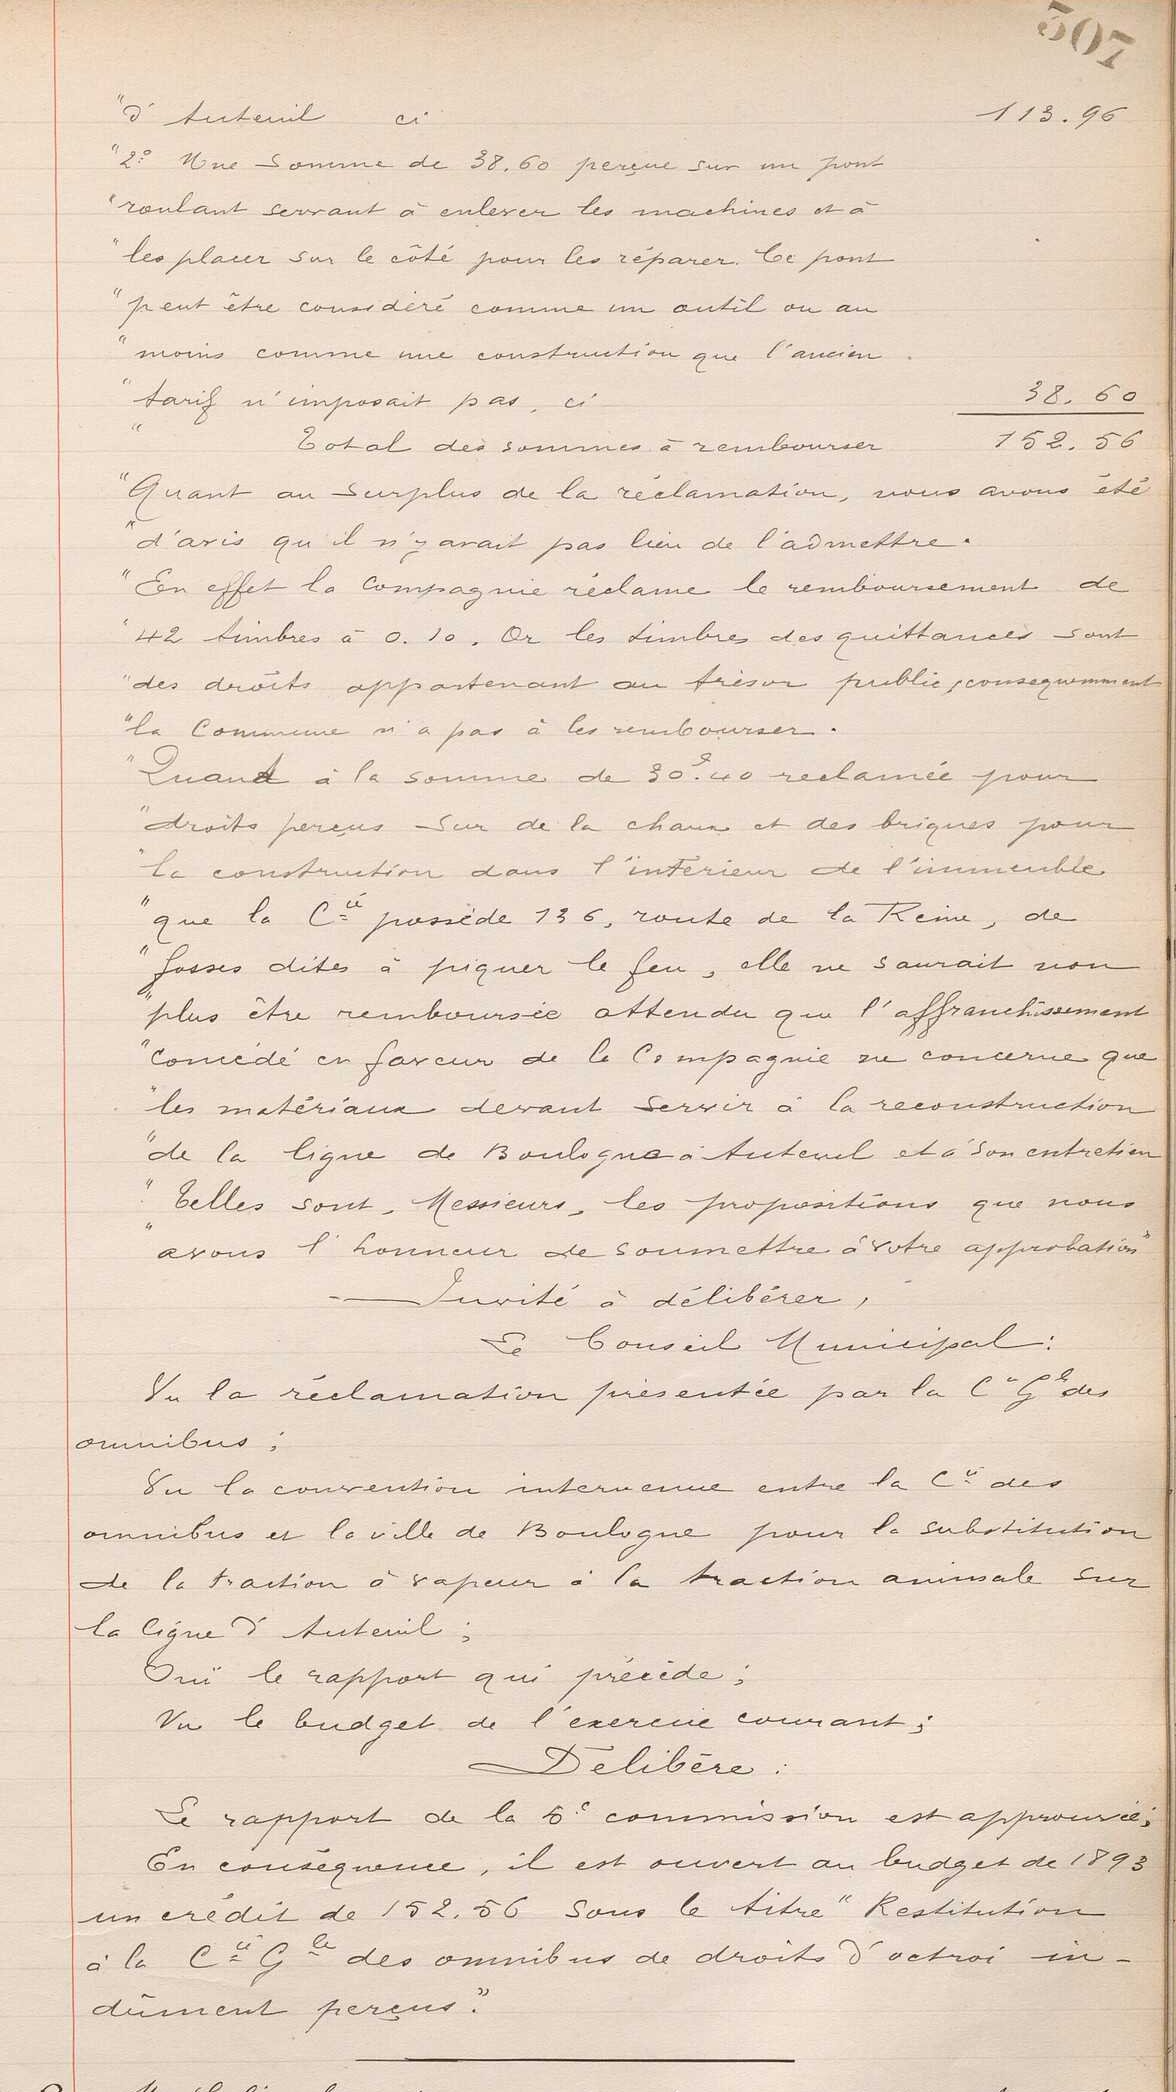 307
"d'Auteuil ci 113.96
"2° Une somme de 38.60 perçue sur un pont
"roulant servant à enlever les machines et à
"les placer sur le côté pour les réparer. Ce pont
"peut être considéré comme un outil ou au
"moins comme une construction que l'ancien
"tarif n'imposait pas, ci 38.60
" Total des sommes à rembourser 152.56
"Quant au surplus de la réclamation, nous avons été
"d'avis qu'il n'y avait pas lieu de l'admettre.
"En effet la Compagnie réclame le remboursement de
"42 timbres à 0.10. Or les timbres des quittances sont
"des droits appartenant au trésor public, consequemment
"la Commune n'a pas à les rembourser.
"Quand à la somme de 30f.40 reclamée pour
"droits perçus sur de la chaux et des briques pour
"la construction dans l'intérieur de l'immeuble
"que la Cie possède 136, route de la Reine, de
"fosses dites à piquer le feu, elle ne saurait non
"plus être remboursée attendu que l'affranchissement
"concédé en faveur de la Compagnie ne concerne que
"les matériaux devant servir à la reconstruction
"de la ligne de Boulogne à Auteuil et à son entretien
"Telles sont, Messieurs, les propositions que nous
"avons l'honneur de soumettre à votre approbation"
Invité à délibérer,
Le Conseil Municipal:
Vu la réclamation présentée par la Cie Gle des
omnibus;
Vu la convention intervenue entre la Cie des
omnibus et la ville de Boulogne pour la substitution
de la traction à vapeur à la traction animale sur
la ligne d'Auteuil;
Ouï le rapport qui précède;
Vu le budget de l'exercice courant;
Délibère:
Le rapport de la 5e commission est approuvé;
En conséquence, il est ouvert au budget de 1893
un crédit de 152.56 sous le titre "Restitution
à la Cie Gle des omnibus de droits d'octroi in-
dûment perçus."